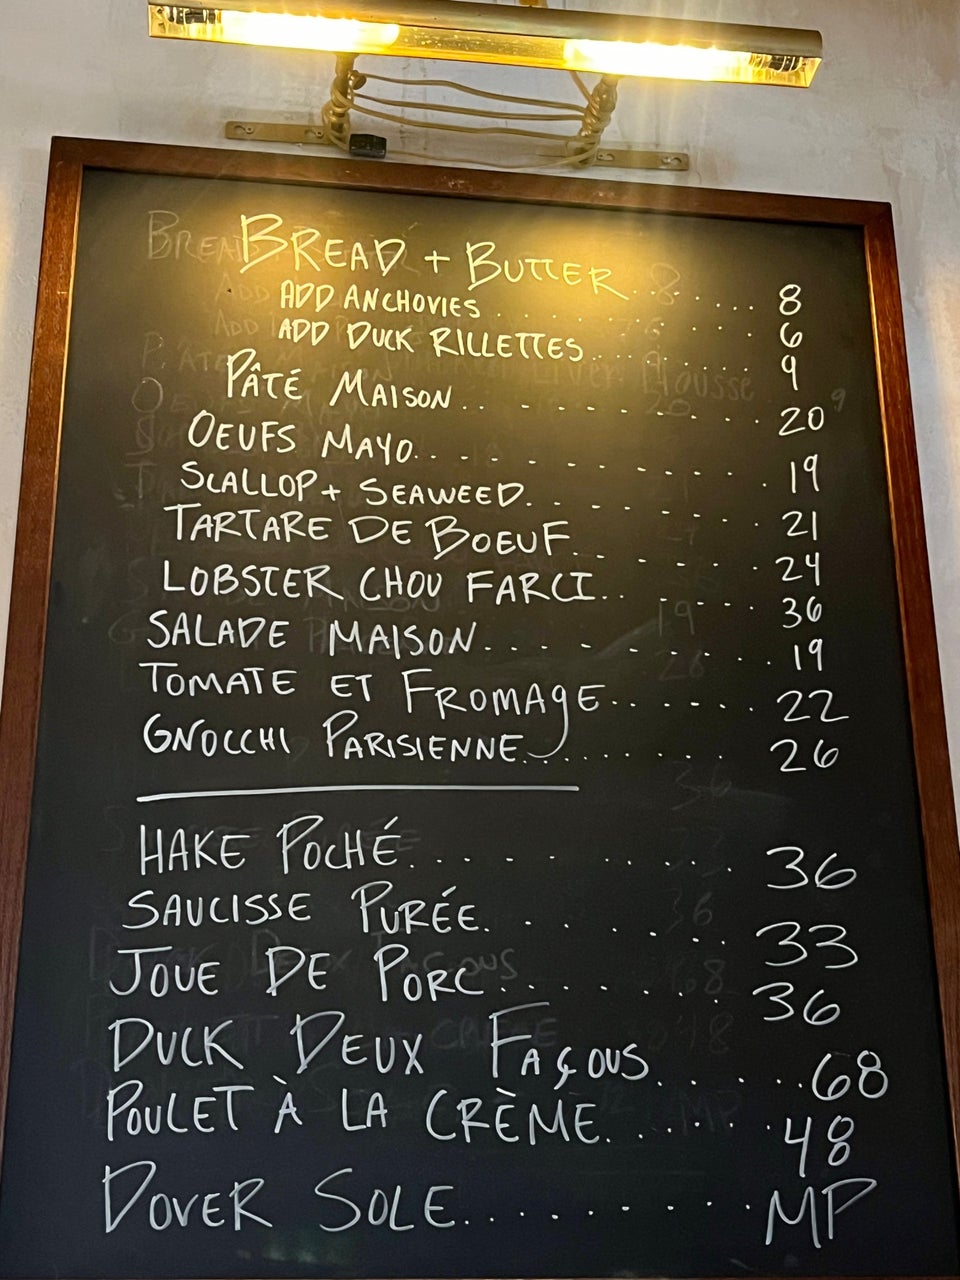 BREAD + BUTTER........ 8
ADD ANCHOVIES........ 6
ADD DUCK RILLETTES........ 9
PÂTÉ MAISON........ 20
OEUFS MAYO........ 19
SCALLOP + SEAWEED........ 21
TARTARE DE BOEUF........ 24
LOBSTER CHOU FARCI........ 36
SALADE MAISON........ 19
TOMATE ET FROMAGE........ 22
GNOCCHI PARISIENNE........ 26
HAKE POCHÉ........ 36
SAUCISSE PURÉE........ 33
JOUE DE PORC........ 36
DUCK DEUX FAÇOUS........ 68
POULET À LA CRÈME........ 48
DOVER SOLE........ MP